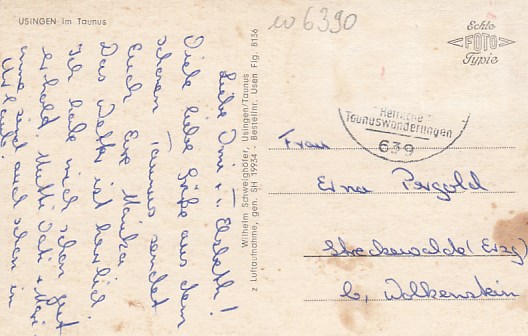 USINGEN im Taunus
w 6390
Echte
FOTO
Typie
Liebe Omi u. Elsbeth!
Viele liebe Grüße aus dem
schönen Taunus sendet
Euch Eure Monika.
Das Wetter ist herrlich.
Ich habe mich schon gut
erholt. Mutti Vati +
sind auch schon in
Urlaub.
Wilhelm Schweighöfer, Usingen/Taunus
z Luftaufnahme, gen. SH 19934 - Bestellnr. Usen Flg. 8136
Taunuswanderungen
639
Frau
Erna Pergold
Streckewalde (Erzg)
b, Wolkenstein